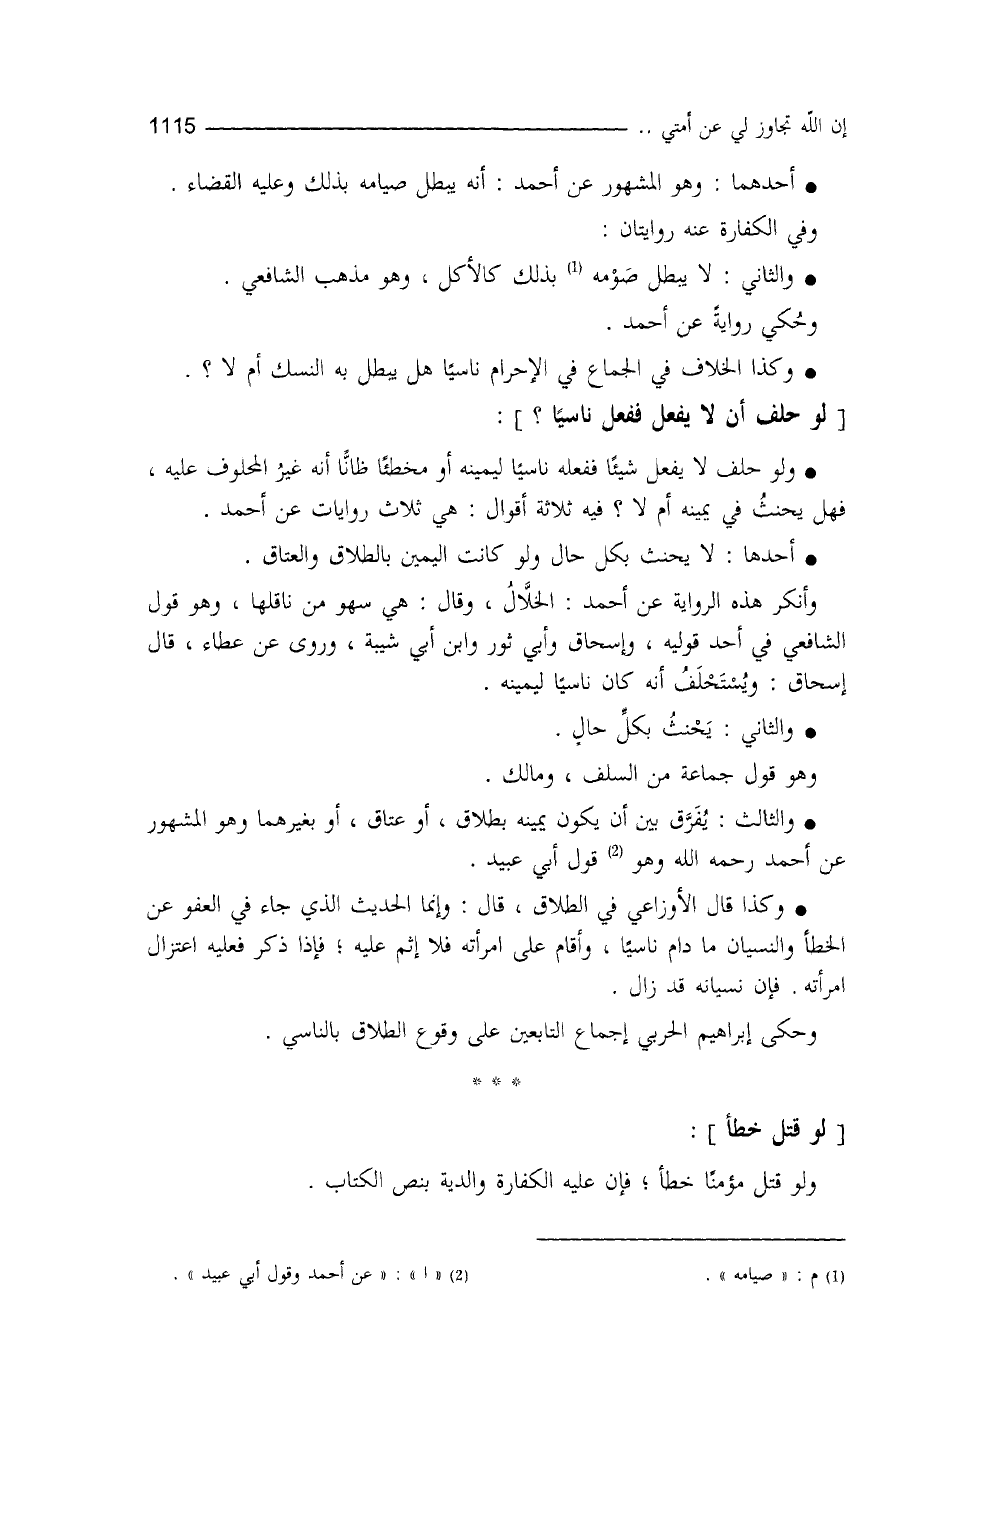 إن اللَّه تجاوز لي عن أمتي .. 1115
● أحدهما : وهو المشهور عن أحمد : أنه يبطل صيامه بذلك وعليه القضاء .
وفي الكفارة عنه روايتان :
● والثاني : لا يبطل صَوْمه (1) بذلك كالأكل ، وهو مذهب الشافعي .
وحُكي روايةً عن أحمد .
● وكذا الخلاف في الجماع في الإحرام ناسيًا هل يبطل به النسك أم لا ؟ .
[ لو حلف أن لا يفعل ففعل ناسيًا ؟ ] :
● ولو حلف لا يفعل شيئًا ففعله ناسيًا ليمينه أو مخطئًا ظانًّا أنه غيرُ المحلوف عليه ،
فهل يحنثُ في يمينه أم لا ؟ فيه ثلاثة أقوال : هي ثلاث روايات عن أحمد .
● أحدها : لا يحنث بكل حال ولو كانت اليمين بالطلاق والعتاق .
وأنكر هذه الرواية عن أحمد : الخلَّالُ ، وقال : هي سهو من ناقلها ، وهو قول
الشافعي في أحد قوليه ، وإسحاق وأبي ثور وابن أبي شيبة ، وروى عن عطاء ، قال
إسحاق : ويُسْتَحْلَفُ أنه كان ناسيًا ليمينه .
● والثاني : يَحْنثُ بكلِّ حالٍ .
وهو قول جماعة من السلف ، ومالك .
● والثالث : يُفَرَّق بين أن يكون يمينه بطلاق ، أو عتاق ، أو بغيرهما وهو المشهور
عن أحمد رحمه الله وهو (2) قول أبي عبيد .
● وكذا قال الأوزاعي في الطلاق ، قال : وإنما الحديث الذي جاء في العفو عن
الخطأ والنسيان ما دام ناسيًا ، وأقام على امرأته فلا إثم عليه ؛ فإذا ذكر فعليه اعتزال
امرأته . فإن نسيانه قد زال .
وحكى إبراهيم الحربي إجماع التابعين على وقوع الطلاق بالناسي .
* * *
[ لو قتل خطأ ] :
ولو قتل مؤمنًا خطأ ؛ فإن عليه الكفارة والدية بنص الكتاب .
(1) م : « صيامه » . (2) « ا » : « عن أحمد وقول أبي عبيد » .